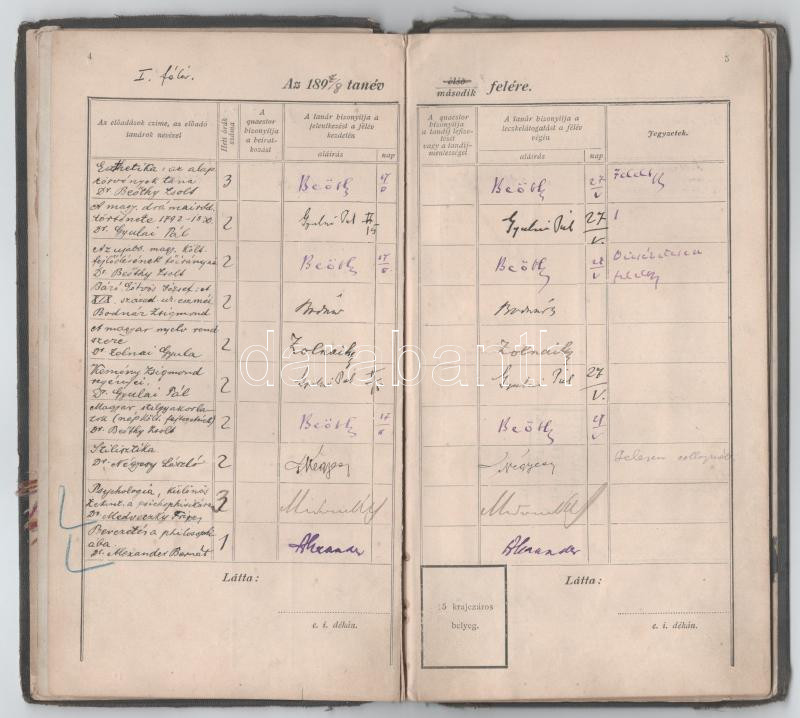 4
I. félév.
Az 189 7/8 tanév
Az előadások czime, az előadó tanárok nevével
Heti órák száma
A quaestor bizonyítja a beiratkozást
A tanár bizonyítja a jelentkezést a félév kezdetén
aláírás
nap
Esthetika: az alap
törvények tana
Dr Beöthy Zsolt
3
Beöthy
A magy. drámairod.
története 1792-18
Dr. Gyulai Pál
2
Gyulai Pál
Az ujabb magy. költ.
fejlődésének főirányai
Dr Beöthy Zsolt
2
Beöthy
Báró Eötvös József: A
XIX. század ur. eszméi
Bodnár Zsigmond
2
Bodnár
A magyar nyelv rend
szere
Dr. Zolnai Gyula
2
Zolnai Gy
Kemény Zsigmond
regényei.
Dr. Gyulai Pál
2
Gyulai Pál
Magyar stílgyakorla
tok (népkölt. fejtegetések)
Dr Beöthy Zsolt
2
Beöthy
Stilisztika
Dr. Négyesy László
2
Négyesy
Psychologia, különös
tekint. a psichophisikára
Dr Medveczky Frigyes
3
Bevezetés a philosoph
iába
Dr. Alexander Bernát
1
Alexander
Látta:
e. i. dékán.
5
első
második
felére.
A quaestor bizonyítja a tandíj lefizetését vagy a tandíjmentességet
A tanár bizonyítja a leczkelátogatást a félév végén
aláírás
nap
Jegyzetek.
Beöthy
27/V
Felelt
Gyulai Pál
27/V.
1
Beöthy
Bodnár
Zolnai Gy
Gyulai Pál
27/V.
Beöthy
Négyesy
Jelesen
Alexander
Látta:
5 krajczáros
bélyeg.
e. i. dékán.
darabanth